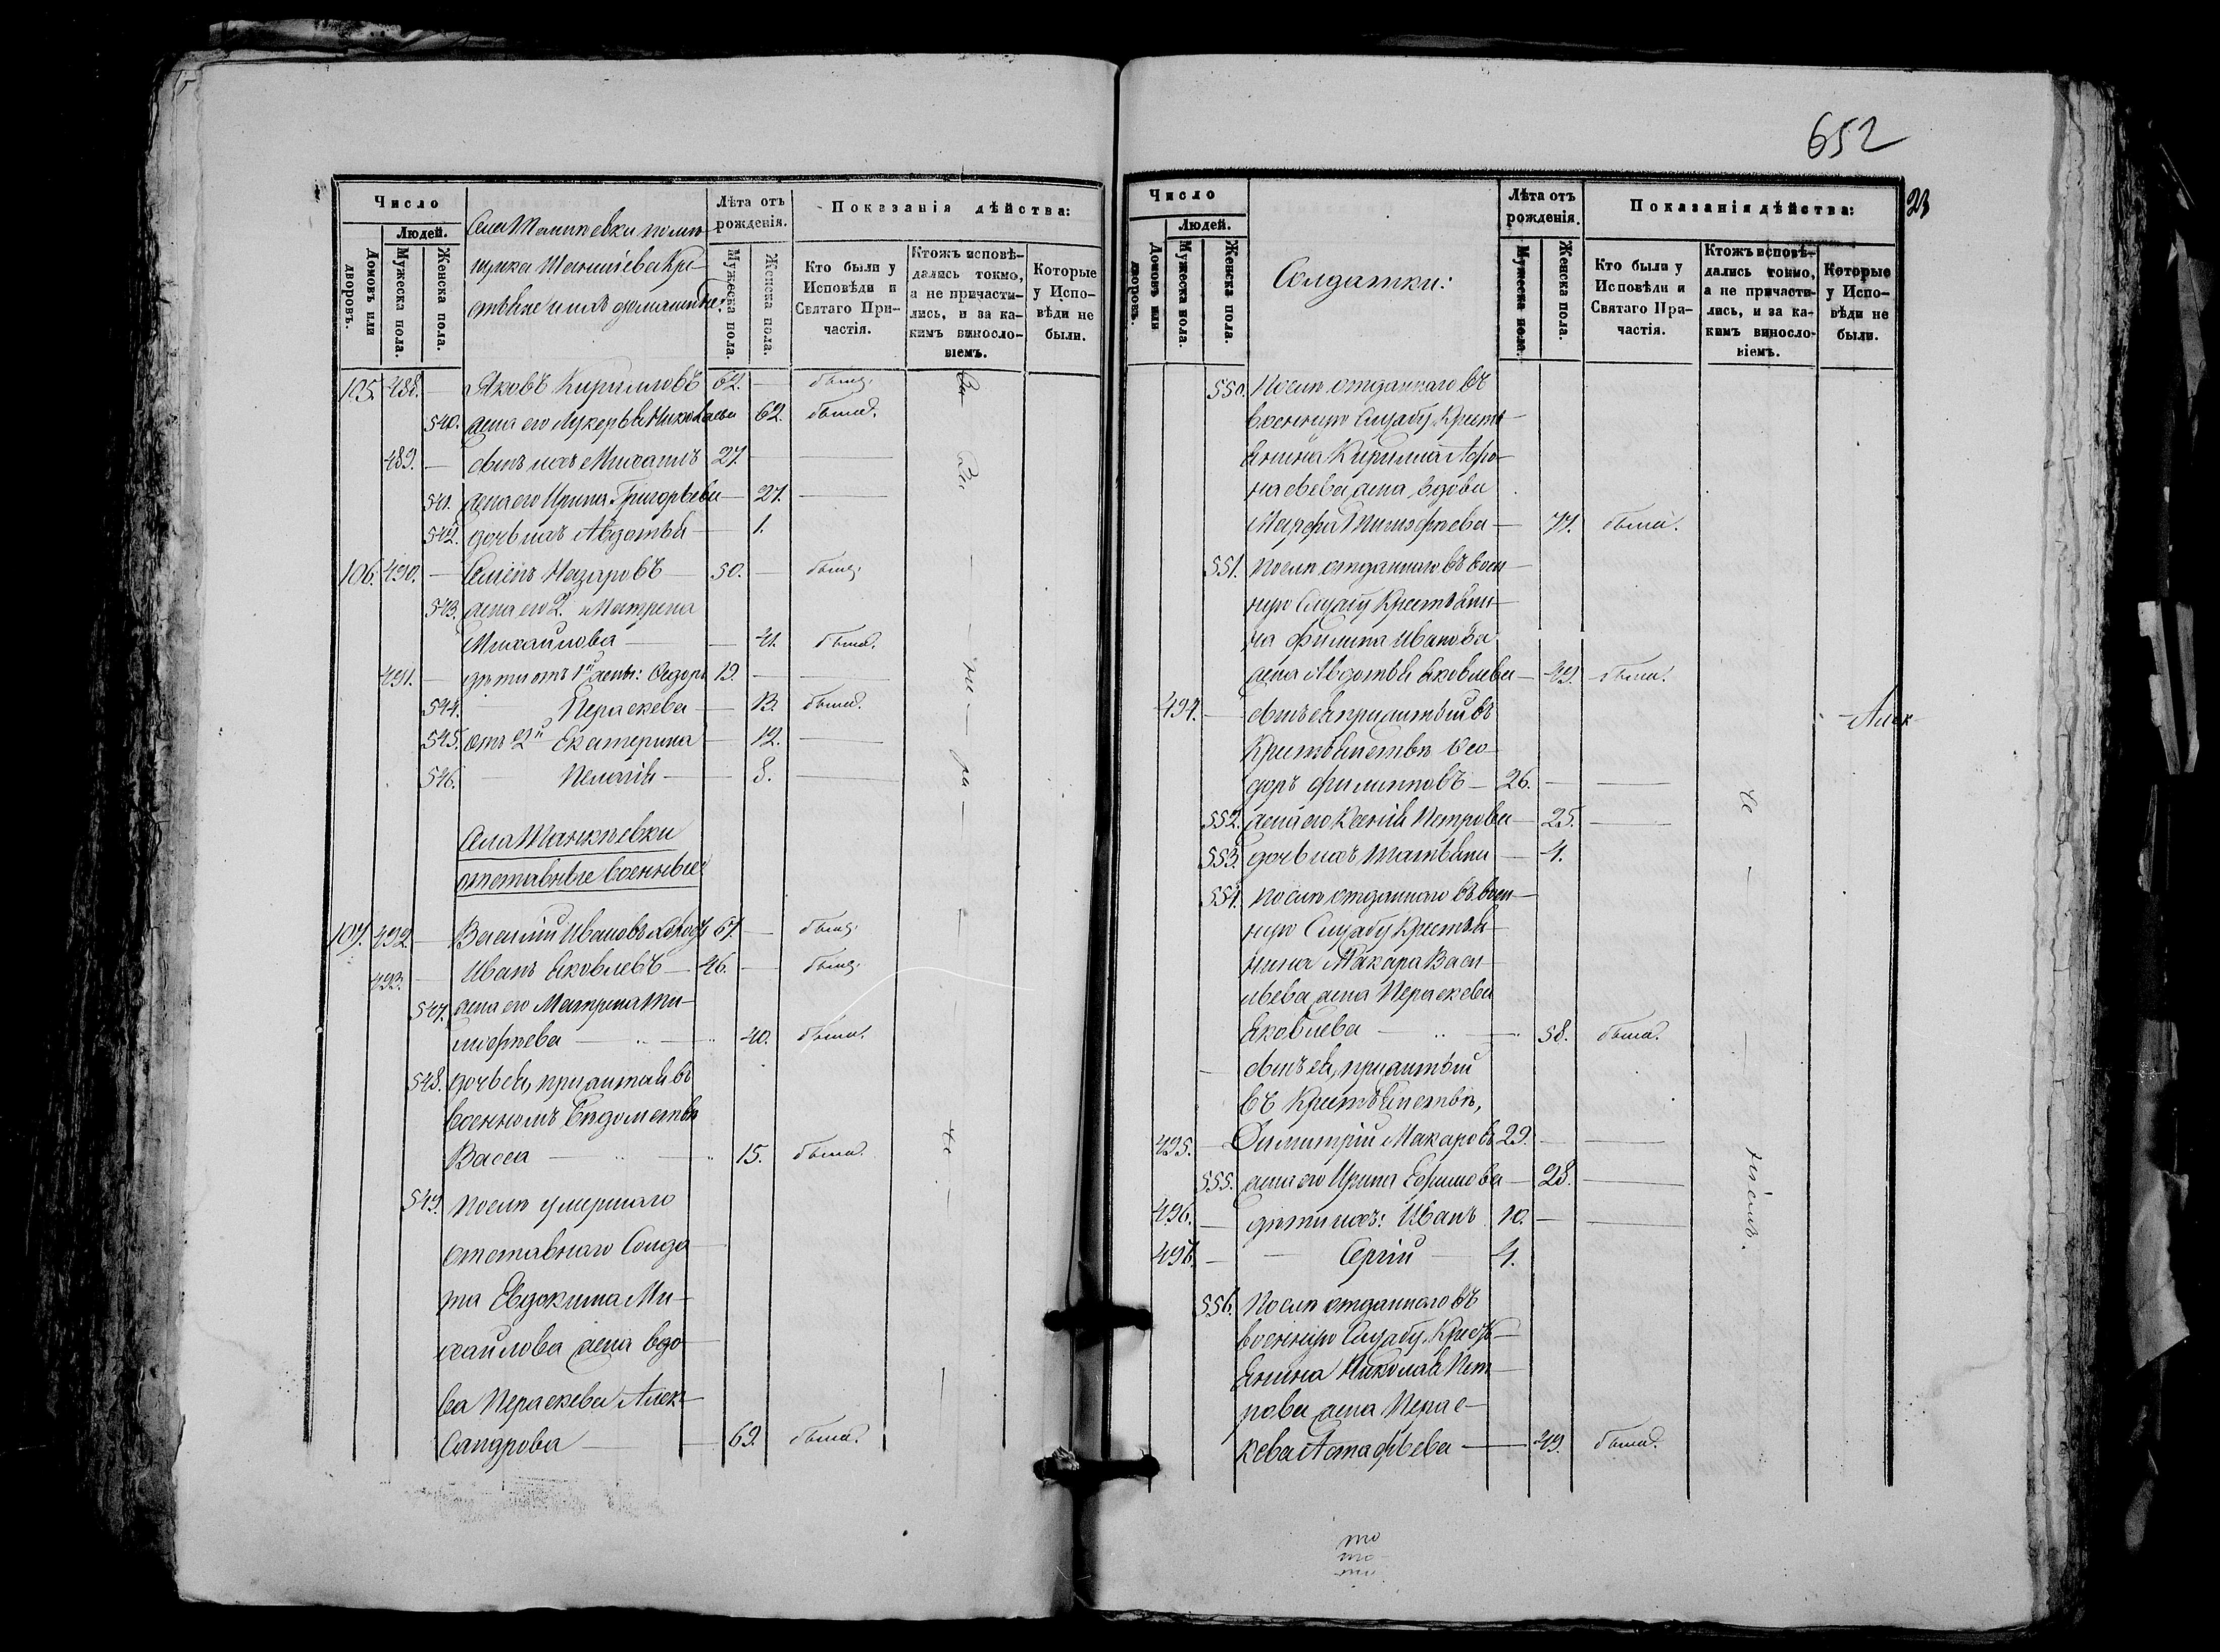 652
23
Число
Людей.
Домовъ или дворовъ.
Мужеска пола.
Женска пола.
помѣ-
щика
Кре-
стьяне и ихъ домашніе:
Лѣта отъ рожденія.
Мужеска пола.
Женска пола.
Показанія дѣйства:
Кто были у Исповѣди и Святаго При-
частія.
Ктожъ исповѣ-
дались токмо,
а не причасти-
лись, и за ка-
кимъ винosло-
віемъ.
Которые
у Испо-
вѣди не
были.
105. 488. — Яковъ Кирилловъ 62. — былъ.
540. жена его Лукерья Николаева 62. была.
489. — сынъ ихъ Михаилъ 27. —
541. жена его Ирина Григорьева — 27. —
542. дочь ихъ Авдотья — 1.
106. 490. — Семенъ Назаровъ 50. — былъ.
543. жена его 2. Матрена
Михайлова — 41. была.
491. — дѣти отъ 1й жены: Ѳедоръ 19. —
544. Параскева — 13. была.
545. отъ 2й Екатерина — 12. —
546. — Пелагія — 8. —
Села
отставные военные:
107. 492. — Василій Ивановъ 67. — былъ.
493. — Иванъ Яковлевъ — 46. — былъ.
547. жена его Матрена Ти-
моѳеева — 40. была.
548. дочь ея, прижитая въ
военномъ вѣдомствѣ
Васса — 15. была.
549. Послѣ умершаго
отставнаго Солда-
та Евдокима Ми-
хайлова жена вдо-
ва Параскева Алек-
сандрова — 69. была.
Число
Людей.
Домовъ или дворовъ.
Мужеска пола.
Женска пола.
Солдатки:
Лѣта отъ рожденія.
Мужеска пола.
Женска пола.
Показанія дѣйства:
Кто были у
Исповѣди и
Святаго При-
частія.
Ктожъ исповѣ-
дались токмо,
а не причасти-
лись, и за ка-
кимъ винocло-
віемъ.
Которые
у Испо-
вѣди не
были.
550. Послѣ отданнаго въ
военную Службу Кресть-
янина Кирилла Аѳа-
насьева жена вдова
Марфа Тимоѳеева — 77. была.
551. Послѣ отданнаго въ воен-
ную Службу Крестьяни-
на Филипа Иванова
жена Авдотья Яковлева — 49. была.
494. — сынъ ея прижитый въ
Крестьянствѣ Ѳео-
доръ Филипповъ — 26. —
552. жена его Ксенія Петрова — 25. —
553. дочь ихъ Татьяна — 4.
554. Послѣ отданнаго въ воен-
ную Службу Крестья-
нина Макара Васи-
льева жена Параскева
Яковлева — 58. была.
сынъ ея, прижитый
въ Крестьянствѣ,
495. — Димитрій Макаровъ 29. —
555. жена его Ирина Ефимова — 28. —
496. — дѣти ихъ: Иванъ 10. —
497. — Сергій — 4.
556. Послѣ отданнаго въ
военную Службу Кресть-
янина Николая Пет-
рова жена Парас-
кева Астафьева — 49. была.
За
не
ра
че
ніемъ.